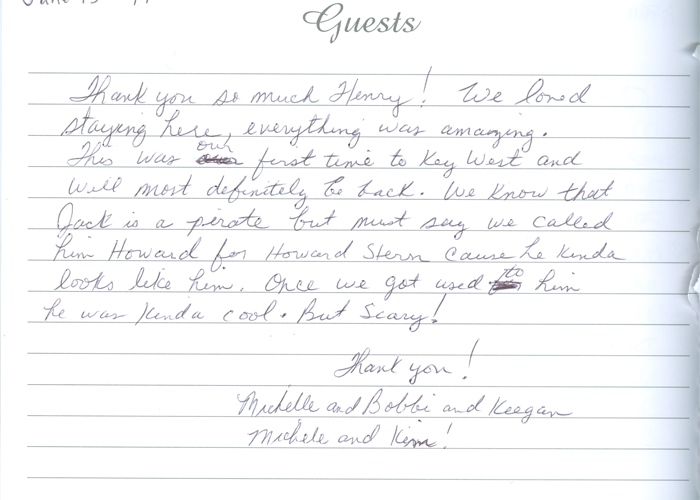 Guests
Thank you so much Henry! We loved
staying here, everything was amazing.
This was our first time to Key West and
will most definitely be back. We know that
Jack is a pirate but must say we called
him Howard for Howard Stern cause he kinda
looks like him. Once we got used to him
he was kinda cool. But Scary!
Thank you!
Michelle and Bobbi and Keegan
Michele and Kim!